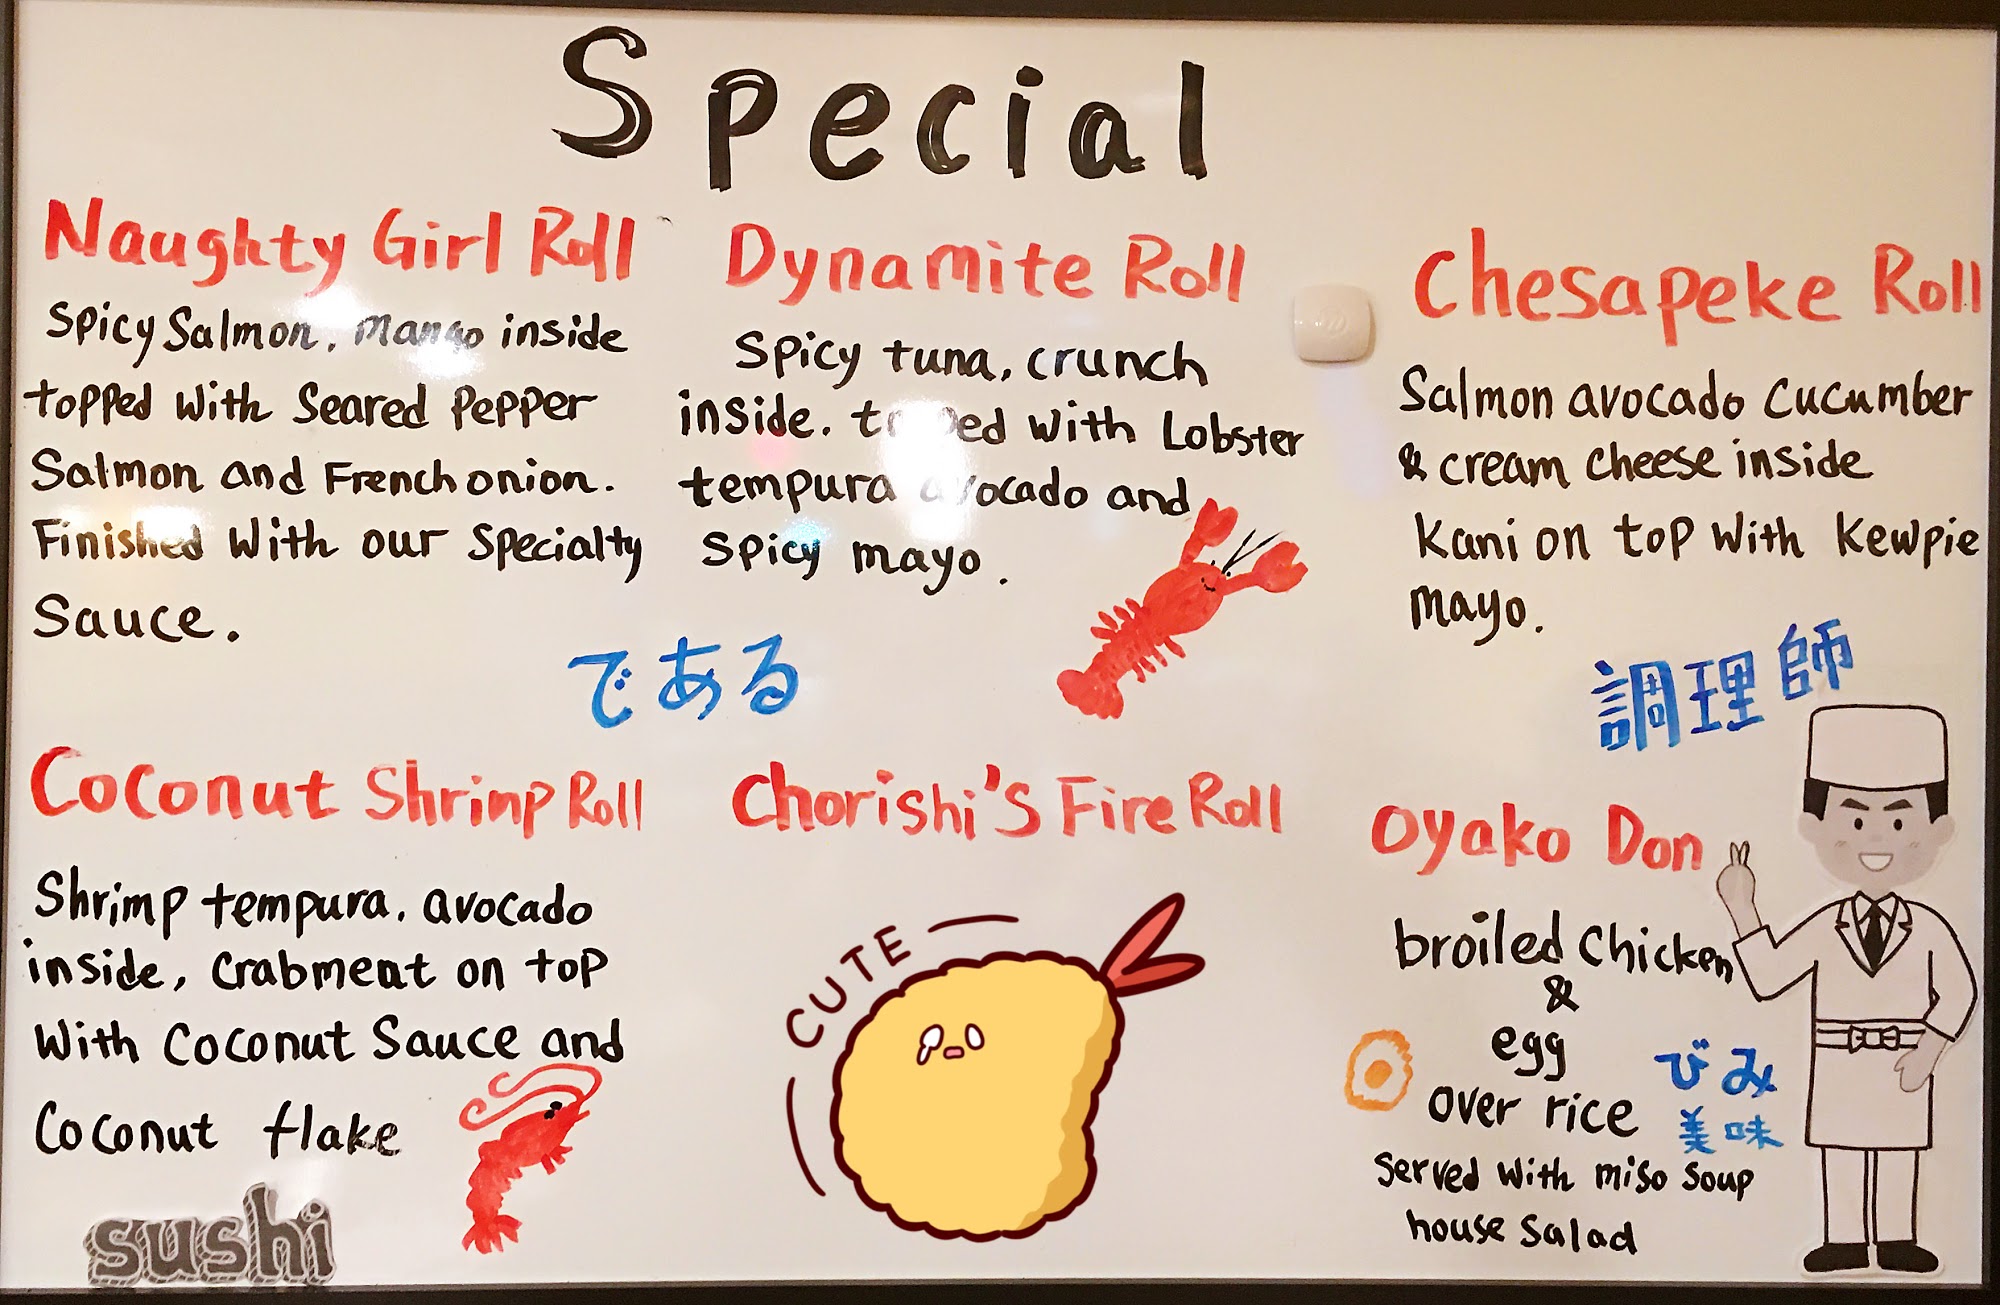 Special
Naughty Girl Roll
Spicy Salmon, mango inside
topped with Seared Pepper
Salmon and French onion.
Finished with our Specialty
Sauce.
Dynamite Roll
Spicy tuna, crunch
inside. topped with Lobster
tempura avocado and
Spicy mayo.
Chesapeke Roll
Salmon avocado cucumber
& cream cheese inside
Kani on top with kewpie
mayo.
である
調理師
Coconut Shrimp Roll
Shrimp tempura, avocado
inside, crabmeat on top
with Coconut Sauce and
Coconut flake
sushi
Chorishi's Fire Roll
CUTE
Oyako Don
broiled chicken
&
egg
over rice
びみ
美味
Served with miso soup
house salad